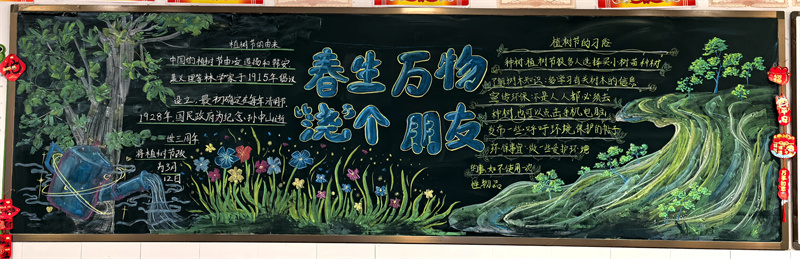 植树节的由来
中国的植树节由凌道扬和韩安
等林学家于1915年倡议
设立,最初确定在每年清明节
1928年国民政府为纪念孙中山逝
世三周年
将植树节改
为3月
12日
春生万物
“浇”个朋友
植树节的习俗
种树植树节很多人选择买小树苗种树
了解树木知识:学习有关树木的信息
宣传环保不是人人都必须去
种树也可以点击手机电脑
发布一些呼吁环境保护的帖子
环保事宜:做一些爱护环境
的事如不使用一次
性物品